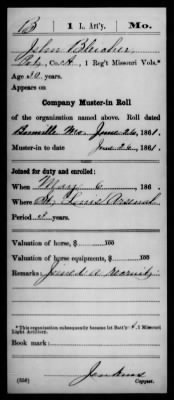 B | 1 | L. Art'y. | Mo.
John Bleicher
Pvt., Co. H, 1 Reg't Missouri Vols.*
Age 30 years.
Appears on
Company Muster-in Roll
of the organization named above. Roll dated
Boonville Mo. June 26, 1861.
Muster-in to date June 26, 1861.
Joined for duty and enrolled:
When May 6, 186 .
Where St. Louis Arsenal
Period 3 years.
Valuation of horse, $ 100
Valuation of horse equipments, $ 100
Remarks: Joined a recruit
*This organization subsequently became 1st Bat'y , 1 Missouri
Light Artillery.
Book mark:
Jenkins
(356) Copyist.